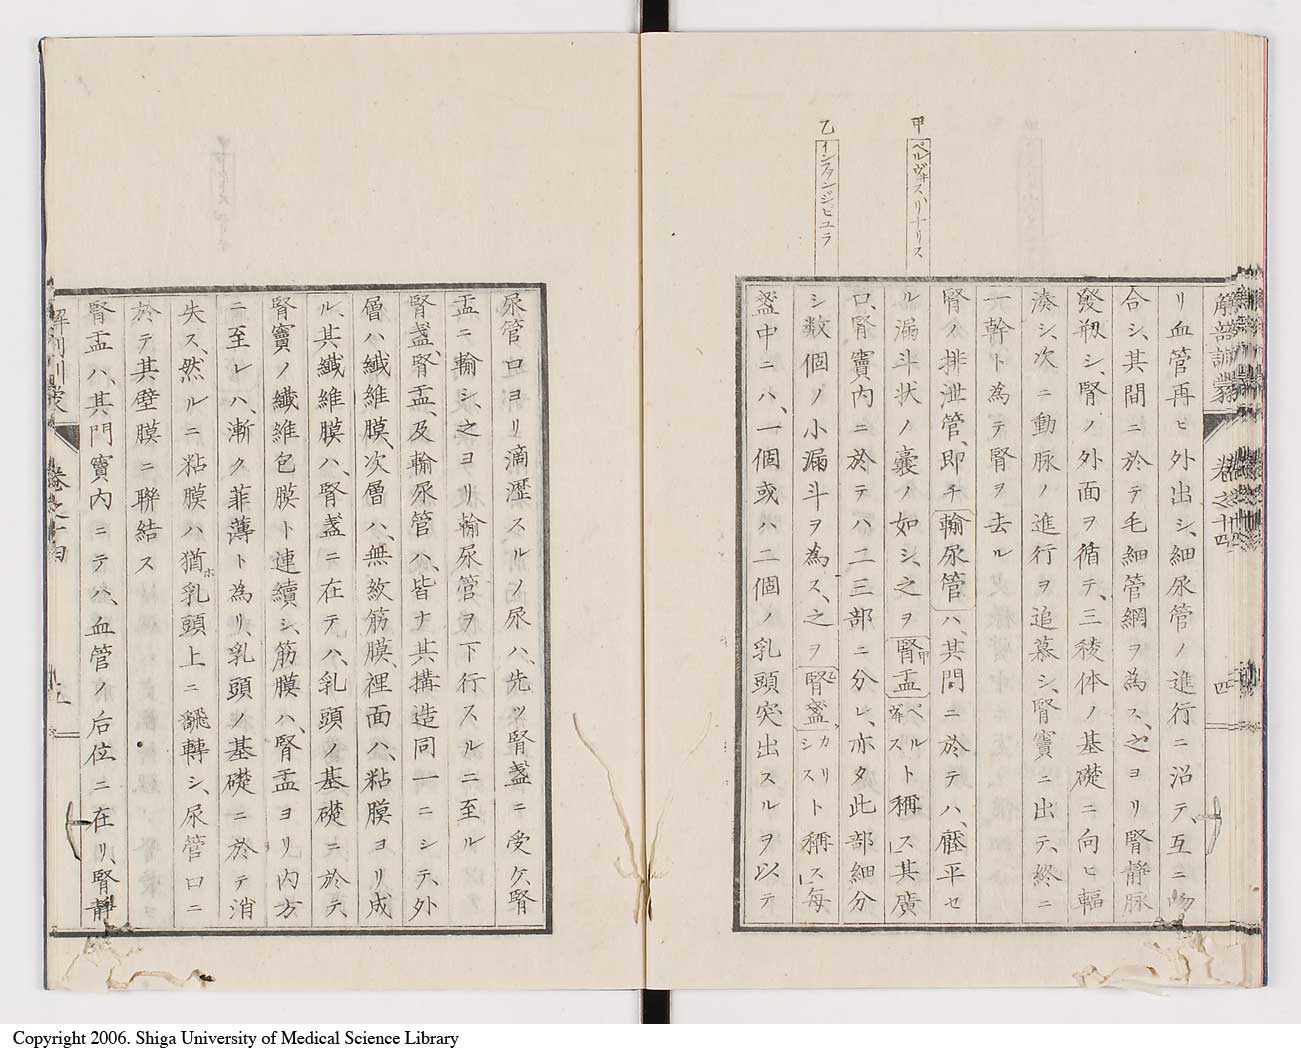 甲
ペルヴ井ス、リナリス
乙
インファンジビュラ
解剖訓蒙 巻之十四 四
リ血管再ヒ外出シ、細尿管ノ進行ニ沿テ、互ニ吻
合シ、其間ニ於テ毛細管網ヲ為ス、之ヨリ腎静脉
發刱シ、腎ノ外面ヲ循テ、三稜体ノ基礎ニ向ヒ輻
湊シ、次ニ動脉ノ進行ヲ追慕シ、腎竇ニ出テ、終ニ
一幹ト為テ腎ヲ去ル
腎ノ排泄管、即チ輸尿管ハ、其門ニ於テハ、壓平セ
ル漏斗状ノ嚢ノ如シ、之ヲ腎盂甲ペルト井ス稱ス其廣
口、腎竇内ニ於テハ二三部ニ分レ、亦タ此部細分
シ数個ノ小漏斗ヲ為ス、之ヲ腎盞乙カリシスト稱ス毎
盞中ニハ、一個或ハ二個ノ乳頭突出スルヲ以テ
尿管口ヨリ滴瀝スルノ尿ハ、先ツ腎盞ニ受ケ、腎
盂ニ輸シ、之ヨリ輸尿管ヲ下行スルニ至ル
腎盞、腎盂、及輸尿管ハ、皆ナ其搆造同一ニシテ、外
層ハ纎維膜、次層ハ、無紋筋膜、裡面ハ、粘膜ヨリ成
ル、其纎維膜ハ、腎盞ニ在テハ、乳頭ノ基礎ニ於テ
腎竇ノ纎維包膜ト連續シ、筋膜ハ、腎盂ヨリ内方
ニ至レハ、漸ク菲薄ト為リ、乳頭ノ基礎ニ於テ消
失ス、然ルニ粘膜ハ猶ホ乳頭上ニ飜轉シ、尿管口ニ
於テ其壁膜ニ聯結ス
腎盂ハ、其門竇内ニテハ、血管ノ后位ニ在リ、腎静
解剖訓蒙 巻之十四